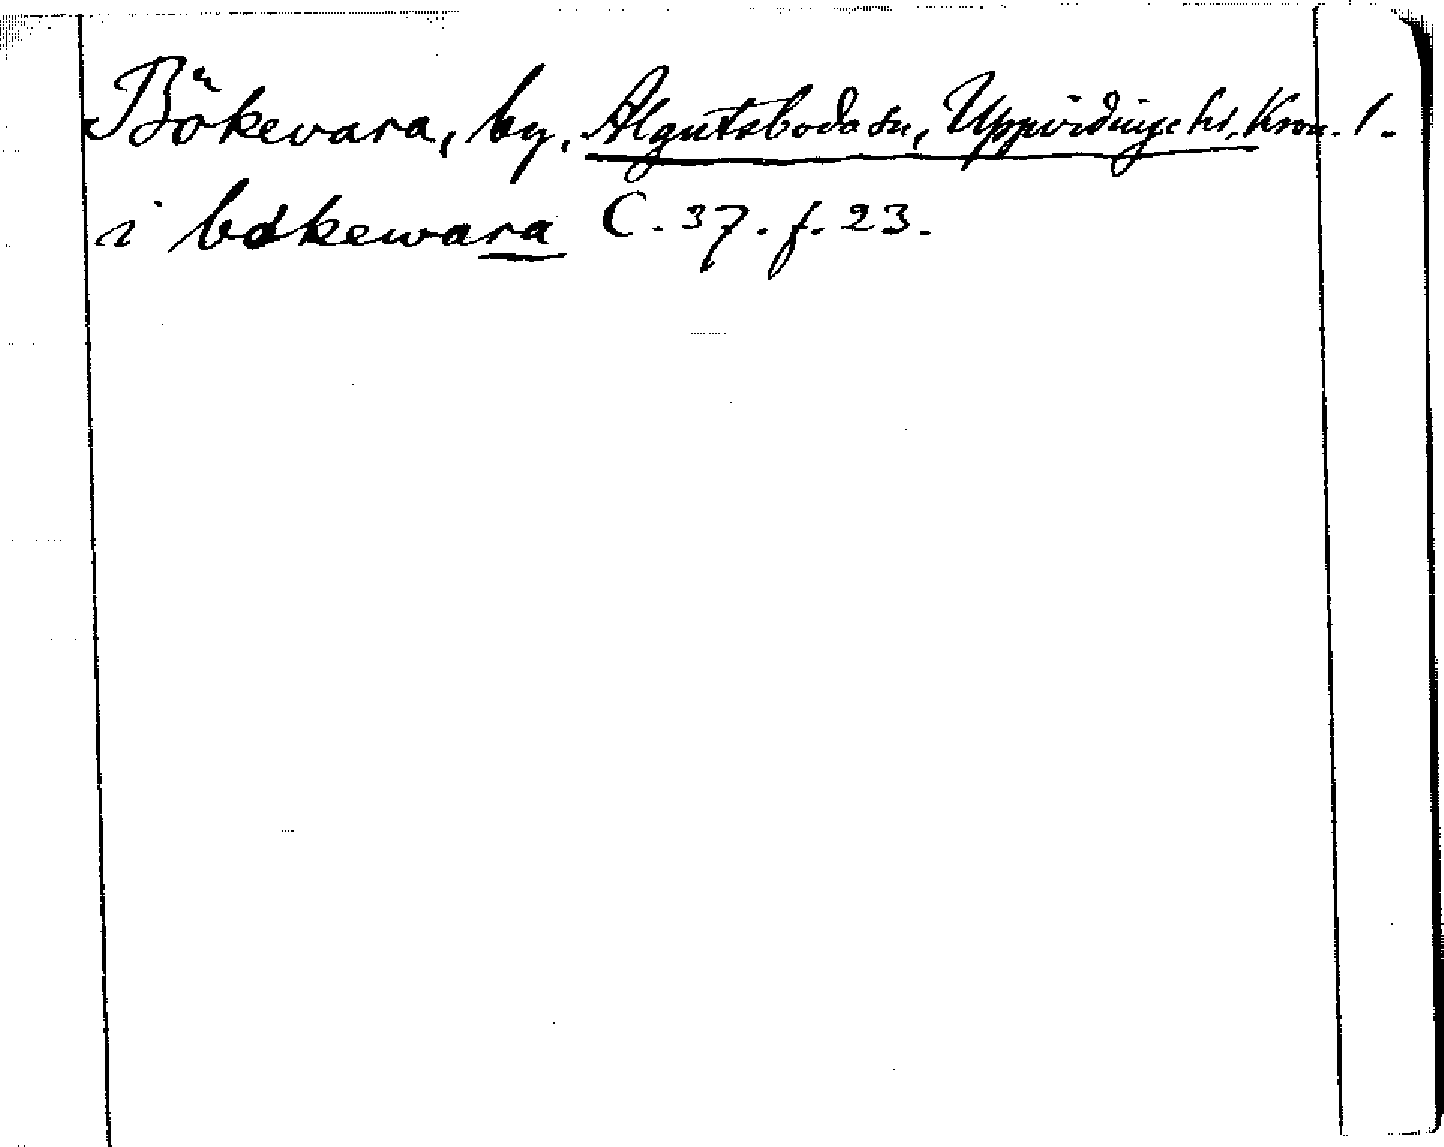 Bökevara, by, Algutsboda sn, Uppvidinge hd, Kron. l.
i bökewara C. 37. f. 23.